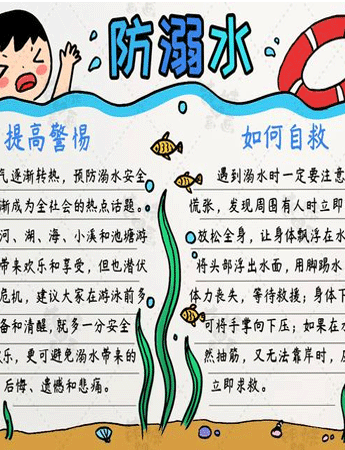 防溺水
提高警惕
气逐渐转热，预防溺水安全
渐成为全社会的热点话题。
河、湖、海、小溪和池塘游
带来欢乐和享受，但也潜伏
危机，建议大家在游泳前多
备和清醒，就多一分安全
欢乐，更可避免溺水带来的
后悔、遗憾和悲痛。
如何自救
遇到溺水时一定要注意
慌张，发现周围有人时立即
放松全身，让身体飘浮在水
将头部浮出水面，用脚踢水
体力丧失，等待救援；身体下
可将手掌向下压；如果在水
然抽筋，又无法靠岸时，
立即求救。